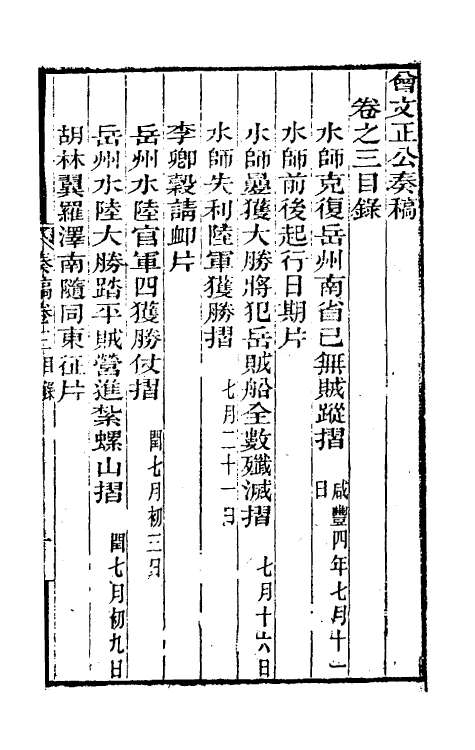 曾文正公奏稿
卷之三目錄
水師克復岳州南省已無賊蹤摺 咸豐四年七月十一日
水師前後起行日期片
水師疊獲大勝將犯岳賊船全數殲滅摺 七月十六日
水師失利陸軍獲勝摺 七月二十一日
李卿穀請卹片
岳州水陸官軍四獲勝仗摺 閏七月初三日
岳州水陸大勝踏平賊營進紮螺山摺 閏七月初九日
胡林翼羅澤南隨同東征片
奏稿卷三目錄